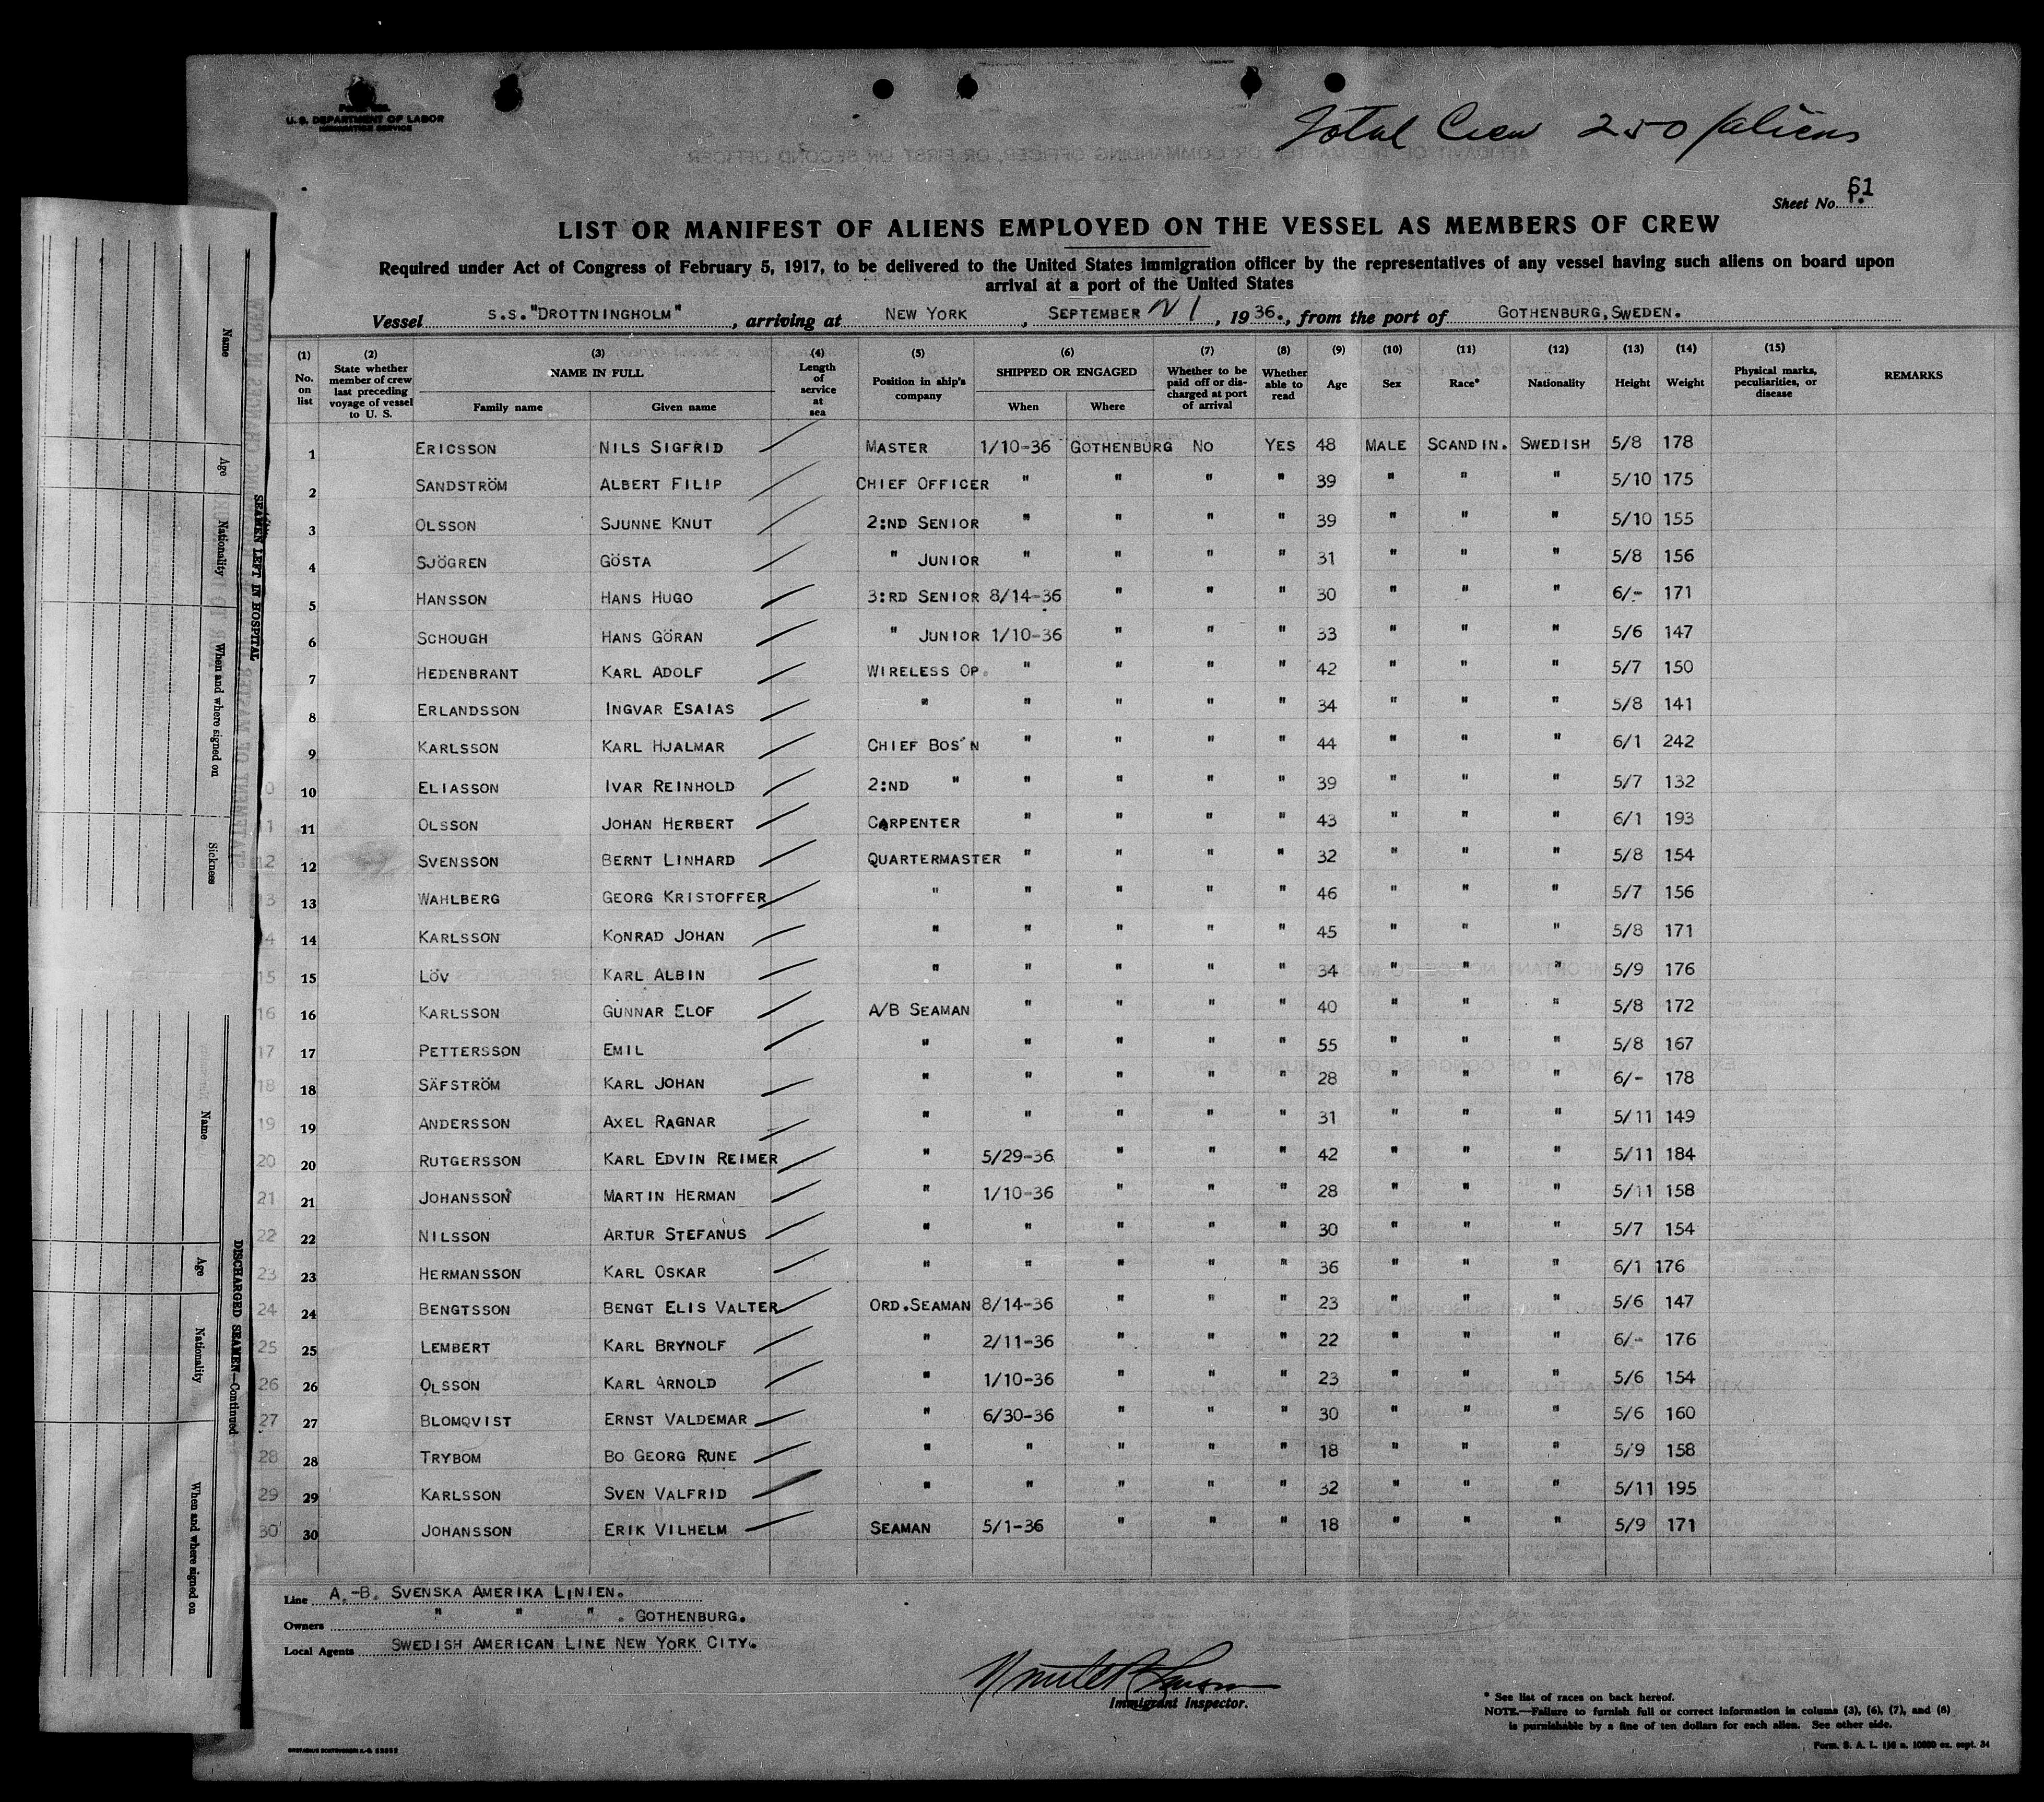 U. S. DEPARTMENT OF LABOR
IMMIGRATION SERVICE
Total Crew 250 aliens
Sheet No. 61
LIST OR MANIFEST OF ALIENS EMPLOYED ON THE VESSEL AS MEMBERS OF CREW
Required under Act of Congress of February 5, 1917, to be delivered to the United States immigration officer by the representatives of any vessel having such aliens on board upon
arrival at a port of the United States
Vessel S.S. "DROTTNINGHOLM", arriving at NEW YORK, SEPTEMBER 1, 1936., from the port of GOTHENBURG, SWEDEN.
(1) No. on list (2) State whether member of crew last preceding voyage of vessel to U. S. (3) NAME IN FULL Family name Given name (4) Length of service at sea (5) Position in ship's company (6) SHIPPED OR ENGAGED When Where (7) Whether to be paid off or discharged at port of arrival (8) Whether able to read (9) Age (10) Sex (11) Race* (12) Nationality (13) Height (14) Weight (15) Physical marks, peculiarities, or disease REMARKS
1 ERICSSON NILS SIGFRID MASTER 1/10-36 GOTHENBURG NO YES 48 MALE SCANDIN. SWEDISH 5/8 178
2 SANDSTRÖM ALBERT FILIP CHIEF OFFICER " " " " 39 " " " 5/10 175
3 OLSSON SJUNNE KNUT 2:ND SENIOR " " " " 39 " " " 5/10 155
4 SJÖGREN GÖSTA " JUNIOR " " " " 31 " " " 5/8 156
5 HANSSON HANS HUGO 3:RD SENIOR 8/14-36 " " " 30 " " " 6/- 171
6 SCHOUGH HANS GÖRAN " JUNIOR 1/10-36 " " " 33 " " " 5/6 147
7 HEDENBRANT KARL ADOLF WIRELESS OP. " " " " 42 " " " 5/7 150
8 ERLANDSSON INGVAR ESAIAS " " " " " 34 " " " 5/8 141
9 KARLSSON KARL HJALMAR CHIEF BOS'N " " " " 44 " " " 6/1 242
10 ELIASSON IVAR REINHOLD 2:ND " " " " " 39 " " " 5/7 132
11 OLSSON JOHAN HERBERT CARPENTER " " " " 43 " " " 6/1 193
12 SVENSSON BERNT LINHARD QUARTERMASTER " " " " 32 " " " 5/8 154
13 WAHLBERG GEORG KRISTOFFER " " " " " 46 " " " 5/7 156
14 KARLSSON KONRAD JOHAN " " " " " 45 " " " 5/8 171
15 LÖV KARL ALBIN " " " " " 34 " " " 5/9 176
16 KARLSSON GUNNAR ELOF A/B SEAMAN " " " " 40 " " " 5/8 172
17 PETTERSSON EMIL " " " " " 55 " " " 5/8 167
18 SÄFSTRÖM KARL JOHAN " " " " " 28 " " " 6/- 178
19 ANDERSSON AXEL RAGNAR " " " " " 31 " " " 5/11 149
20 RUTGERSSON KARL EDVIN REIMER " 5/29-36 " " " 42 " " " 5/11 184
21 JOHANSSON MARTIN HERMAN " 1/10-36 " " " 28 " " " 5/11 158
22 NILSSON ARTUR STEFANUS " " " " " 30 " " " 5/7 154
23 HERMANSSON KARL OSKAR " " " " " 36 " " " 6/1 176
24 BENGTSSON BENGT ELIS VALTER ORD.SEAMAN 8/14-36 " " " 23 " " " 5/6 147
25 LEMBERT KARL BRYNOLF " 2/11-36 " " " 22 " " " 6/- 176
26 OLSSON KARL ARNOLD " 1/10-36 " " " 23 " " " 5/6 154
27 BLOMQVIST ERNST VALDEMAR " 6/30-36 " " " 30 " " " 5/6 160
28 TRYBOM BO GEORG RUNE " " " " " 18 " " " 5/9 158
29 KARLSSON SVEN VALFRID " " " " " 32 " " " 5/11 195
30 JOHANSSON ERIK VILHELM SEAMAN 5/1-36 " " " 18 " " " 5/9 171
Line A.-B. SVENSKA AMERIKA LINIEN.
Owners " " " . GOTHENBURG.
Local Agents SWEDISH AMERICAN LINE NEW YORK CITY.
Immigrant Inspector.
* See list of races on back hereof.
NOTE.—Failure to furnish full or correct information in colums (3), (6), (7), and (8)
is punishable by a fine of ten dollars for each alien. See other side.
Form. S. A. L. 156 a. 10000 ex. sept. 34
SEAMEN LEFT IN HOSPITAL
Name Age Nationality When and where signed on Sickness
DISCHARGED SEAMEN—Continued
Name Age Nationality When and where signed on